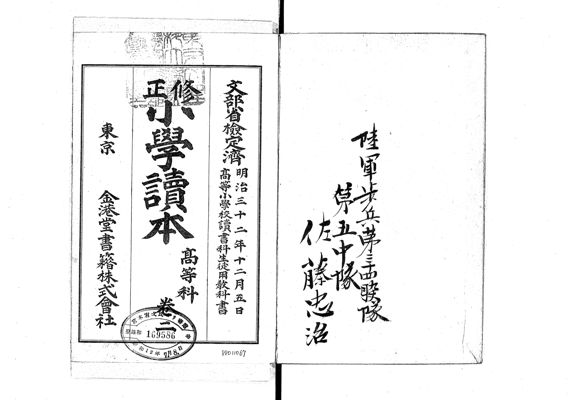 陸軍歩兵第三四聯隊
第五中隊
佐藤忠治
文部省檢定濟
明治三十二年十二月五日
高等小學校讀書科生徒用敎科書
修正
小學讀本
高等科
卷二
東京
金港堂書籍株式會社
169586